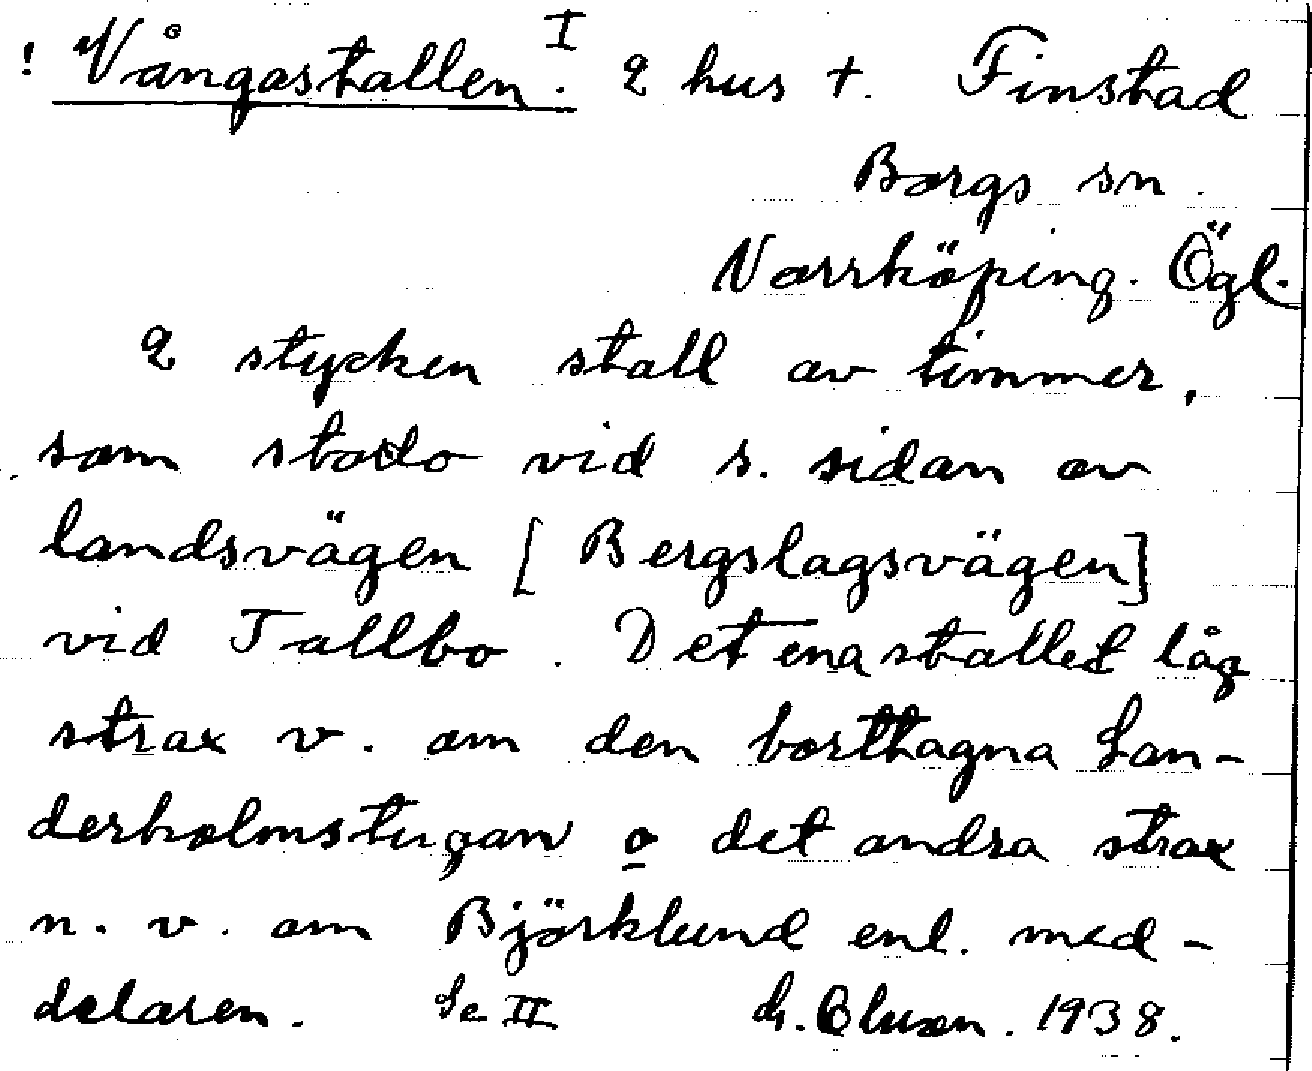 ! Vångastallen. I 2 hus †. Finstad
Borgs sn.
Norrköping. Ögl.
2 stycken stall av timmer,
som stodo vid s. sidan av
landsvägen [Bergslagsvägen]
vid Tallbo. Det ena stallet låg
strax v. om den borttagna San-
derholmstugan o det andra strax
n. v. om Björklund enl. med-
delaren. Se II 1938.